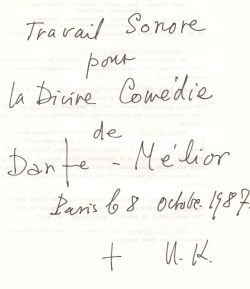 Travail Sonore
pour
la Divine Comédie
de
Dante - Mélior
Paris le 8 octobre 1987
+ U. K.